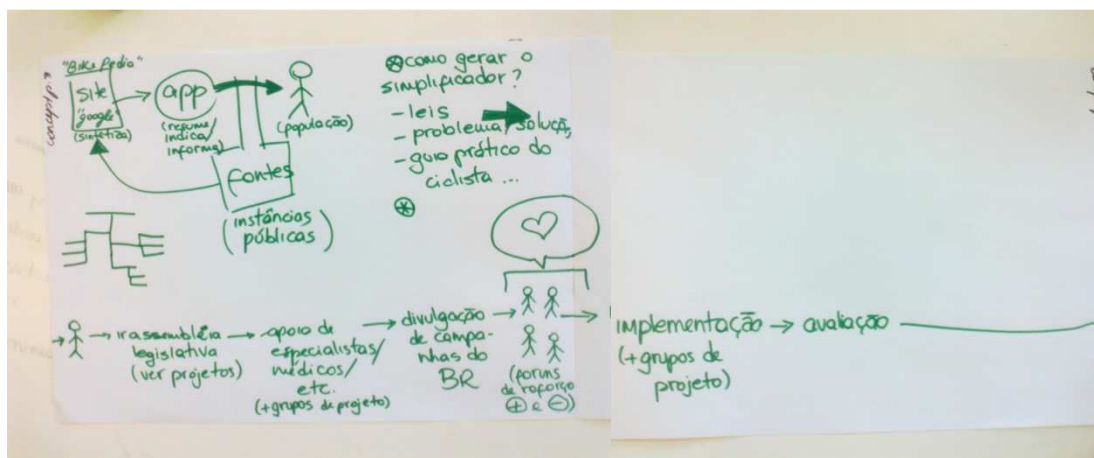 "Bike Pedia"
site
"google"
(sintetiza)
app
(resume/
indica/
informa)
(população)
fontes
(instâncias
públicas)
⊛ como gerar o
simplificador?
- leis
- problema/solução,
- guia prático do
ciclista ...
⊛
→ ir assembléia
legislativa
(ver projetos)
→ apoio de
especialistas/
médicos/
etc.
(+grupos de projeto)
→ divulgação
de campa-
nhas do
BR
(foruns
de reforço
⊕ e ⊖)
implementação → avaliação
(+grupos de
projeto)